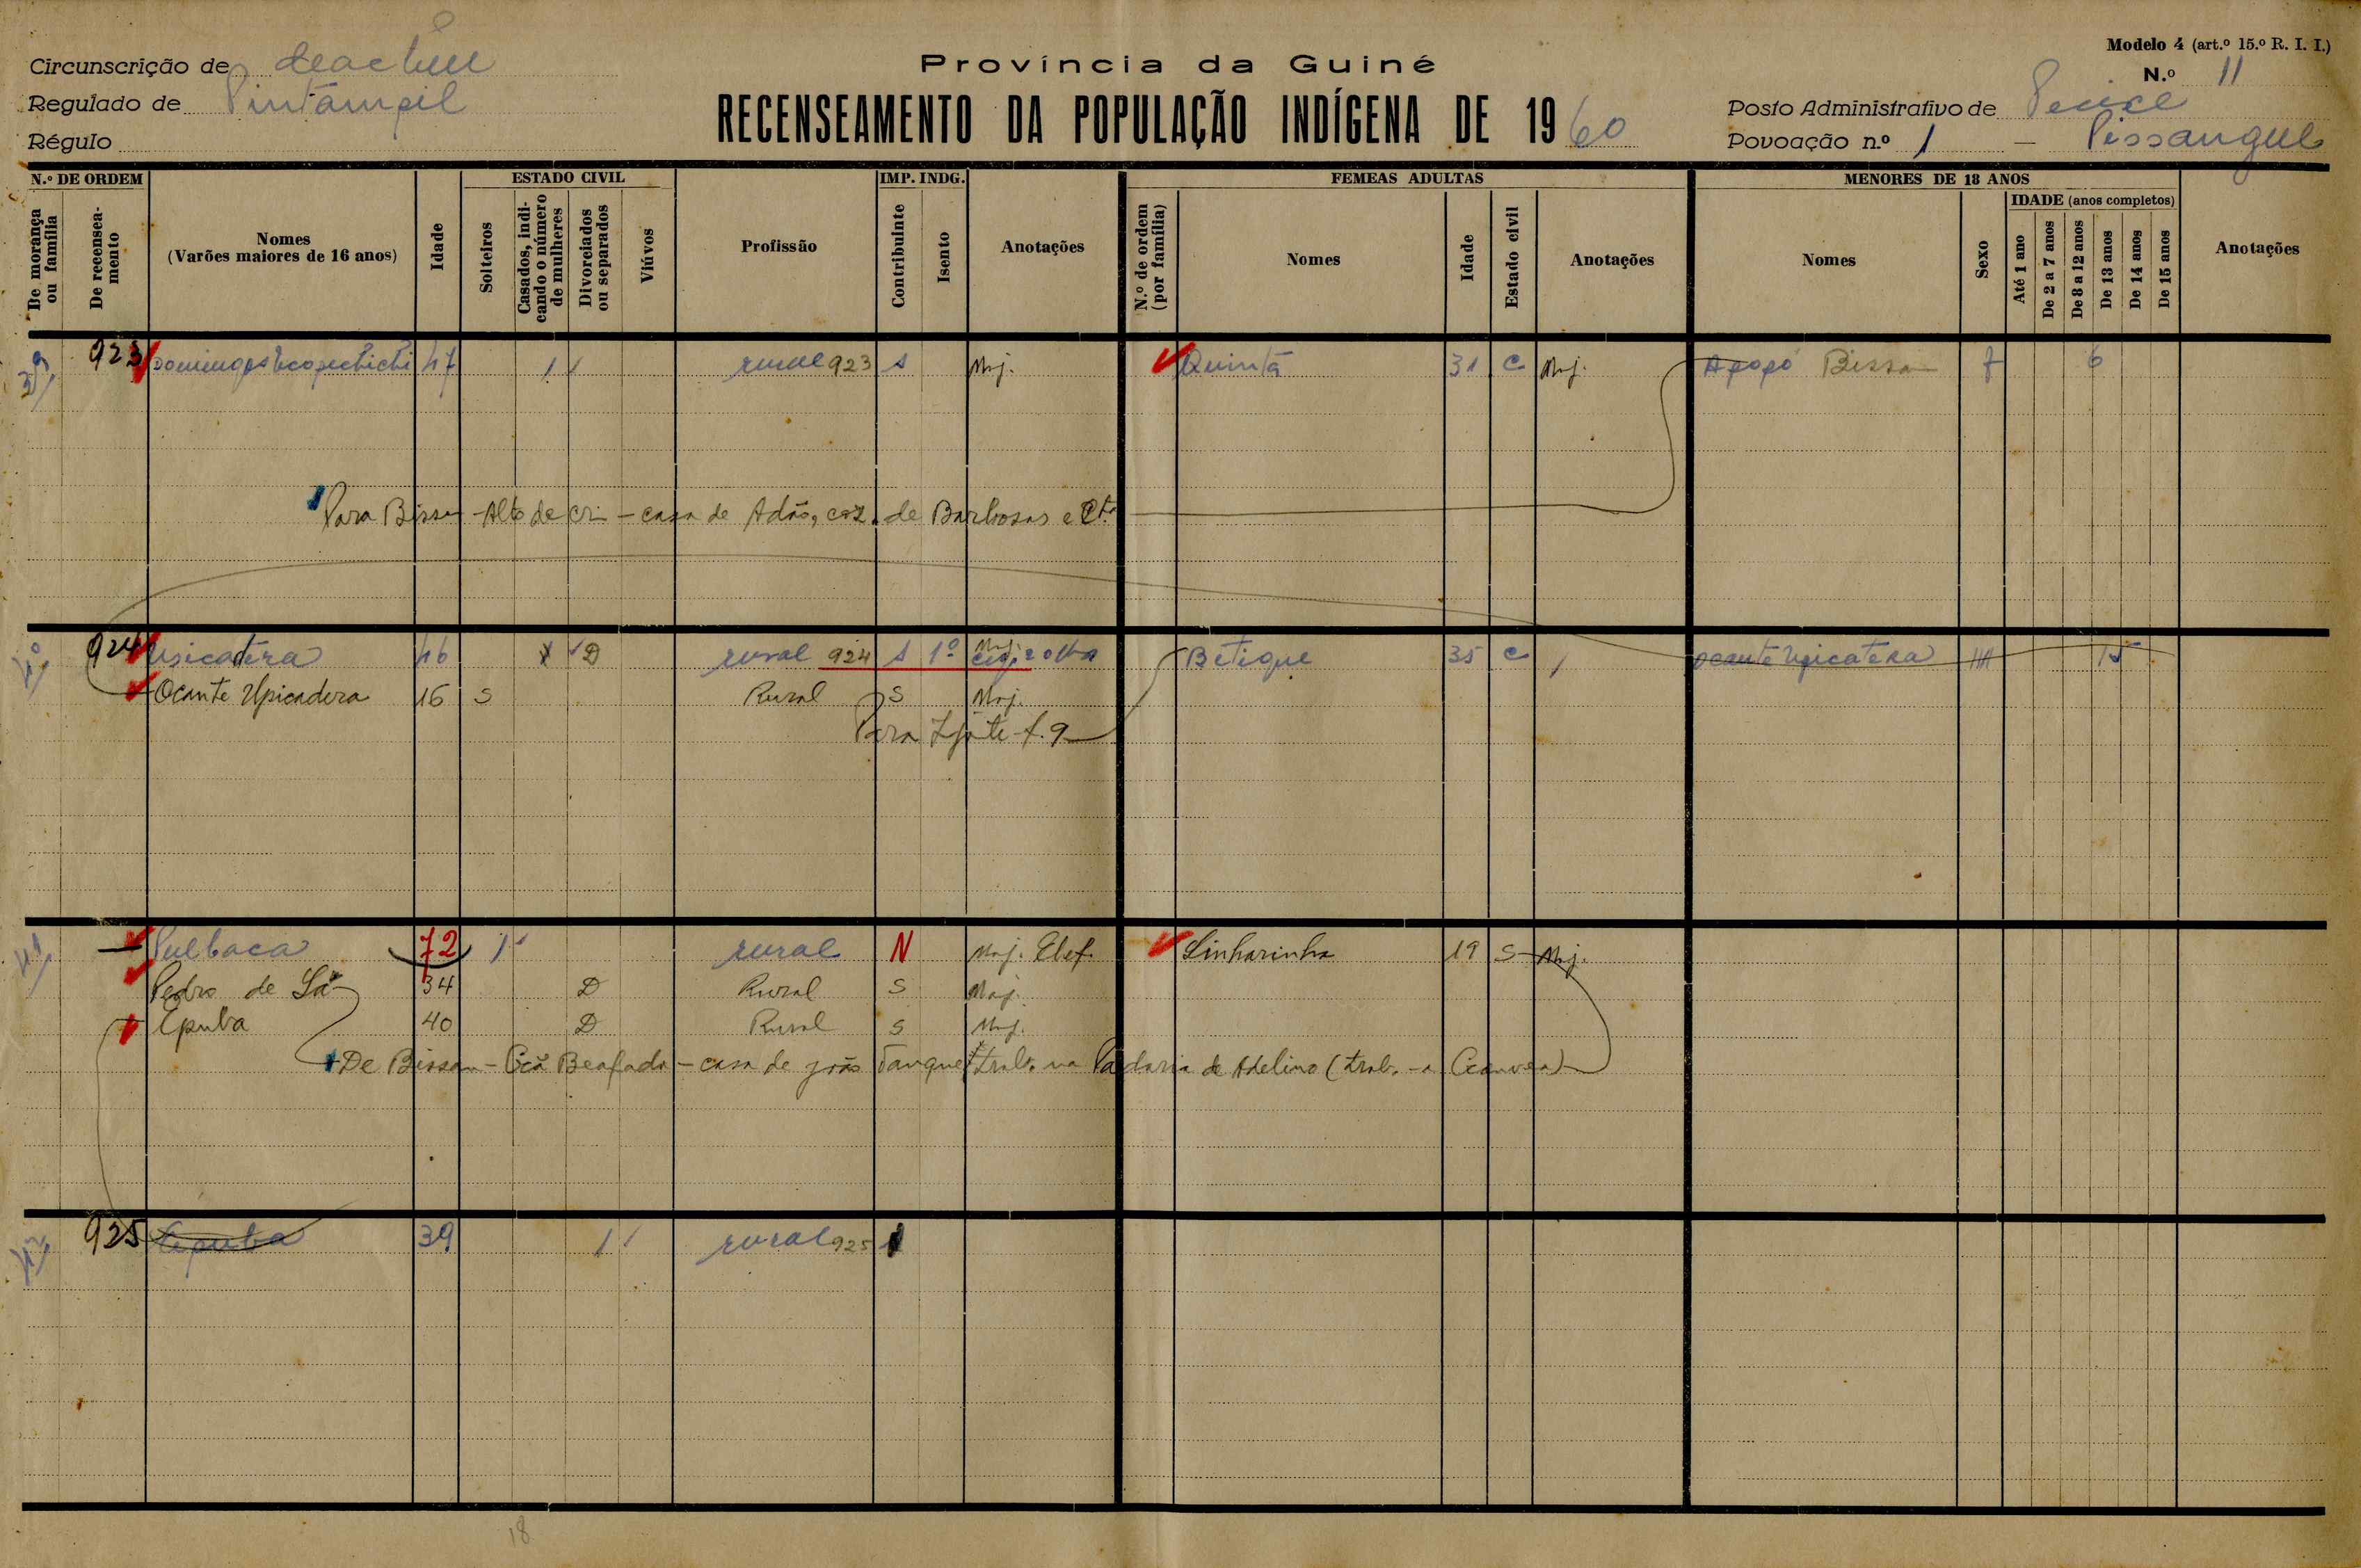 Circunscrição de
Regulado de Pintampil
Régulo
Província da Guiné
RECENSEAMENTO DA POPULAÇÃO INDÍGENA DE 1960
Modelo 4 (art.º 15.º R. I. I.)
N.º 11
Posto Administrativo de
Povoação n.º 1 – Pissangule
N.º DE ORDEM
De morança ou família
De recenseamento
Nomes
(Varões maiores de 16 anos)
Idade
ESTADO CIVIL
Solteiros
Casados, indicando o número de mulheres
Divorciados ou separados
Viúvos
Profissão
IMP. INDG.
Contribuinte
Isento
Anotações
FEMEAS ADULTAS
N.º de ordem (por família)
Nomes
Idade
Estado civil
Anotações
MENORES DE 18 ANOS
Nomes
Sexo
IDADE (anos completos)
Até 1 ano
De 2 a 7 anos
De 8 a 12 anos
De 13 anos
De 14 anos
De 15 anos
Anotações
39 923 Domingos 47 1 rural 923 s Maj. Quintã 31 C Maj. Apopó Bissau f 6
Para Bissau - Alto de cri - casa de Adão, coz. de Barbosas e Cta
924 Upicatera 46 D rural 924 s 1º Maj. Betique 35 C Ocante Upicatera 15
Ocante Upicadera 16 S Rural S Maj.
Para f. 9
41 Pulbaca 72 1 rural N Maj. Elef. Linharinha 19 S Maj.
Pedro de Sá 34 D Rural S Maj.
Epuba 40 D Rural S Maj.
De Bissau - Cicã Beafada - casa de joão Tanque trab. na Padaria de Adelino (trab.
925 Epuba 39 1 rural 925
18